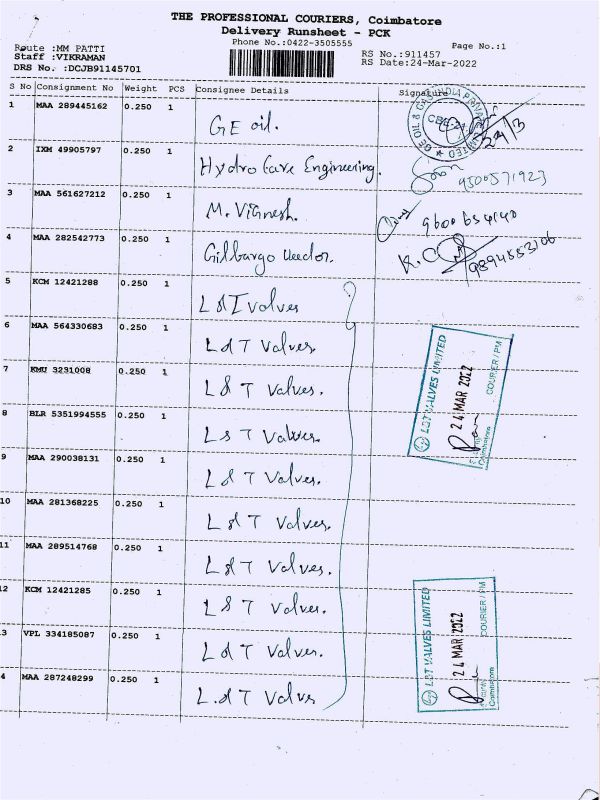 THE PROFESSIONAL COURIERS, Coimbatore
Delivery Runsheet - PCK
Phone No.:0422-3505555
Page No.:1
Route :MM PATTI
RS No.:911457
Staff :VIKRAMAN
RS Date:24-Mar-2022
DRS No. :DCJB91145701
S No Consignment No Weight PCS Consignee Details Signature
1 MAA 289445162 0.250 1 GE oil. 24/3
2 IXM 49905797 0.250 1 Hydro Care Engineering. 9500571923
3 MAA 561627212 0.250 1 M. Vignesh. 9600654140
4 MAA 282542773 0.250 1 Gilbargo Veedor. 9894553106
5 KCM 12421288 0.250 1 L & T valves
6 MAA 564330683 0.250 1 L & T Valves.
7 KMU 3231008 0.250 1 L & T Valves.
8 BLR 5351994555 0.250 1 L & T Valves.
L&T VALVES LIMITED
24 MAR 2022
COURIER / PM
Coimbatore
9 MAA 290038131 0.250 1 L & T Valves.
10 MAA 281368225 0.250 1 L & T Valves.
11 MAA 289514768 0.250 1 L & T Valves.
2 KCM 12421285 0.250 1 L & T Valves.
3 VPL 334185087 0.250 1 L & T Valves.
4 MAA 287248299 0.250 1 L & T Valves
L&T VALVES LIMITED
24 MAR 2022
COURIER / PM
Coimbatore